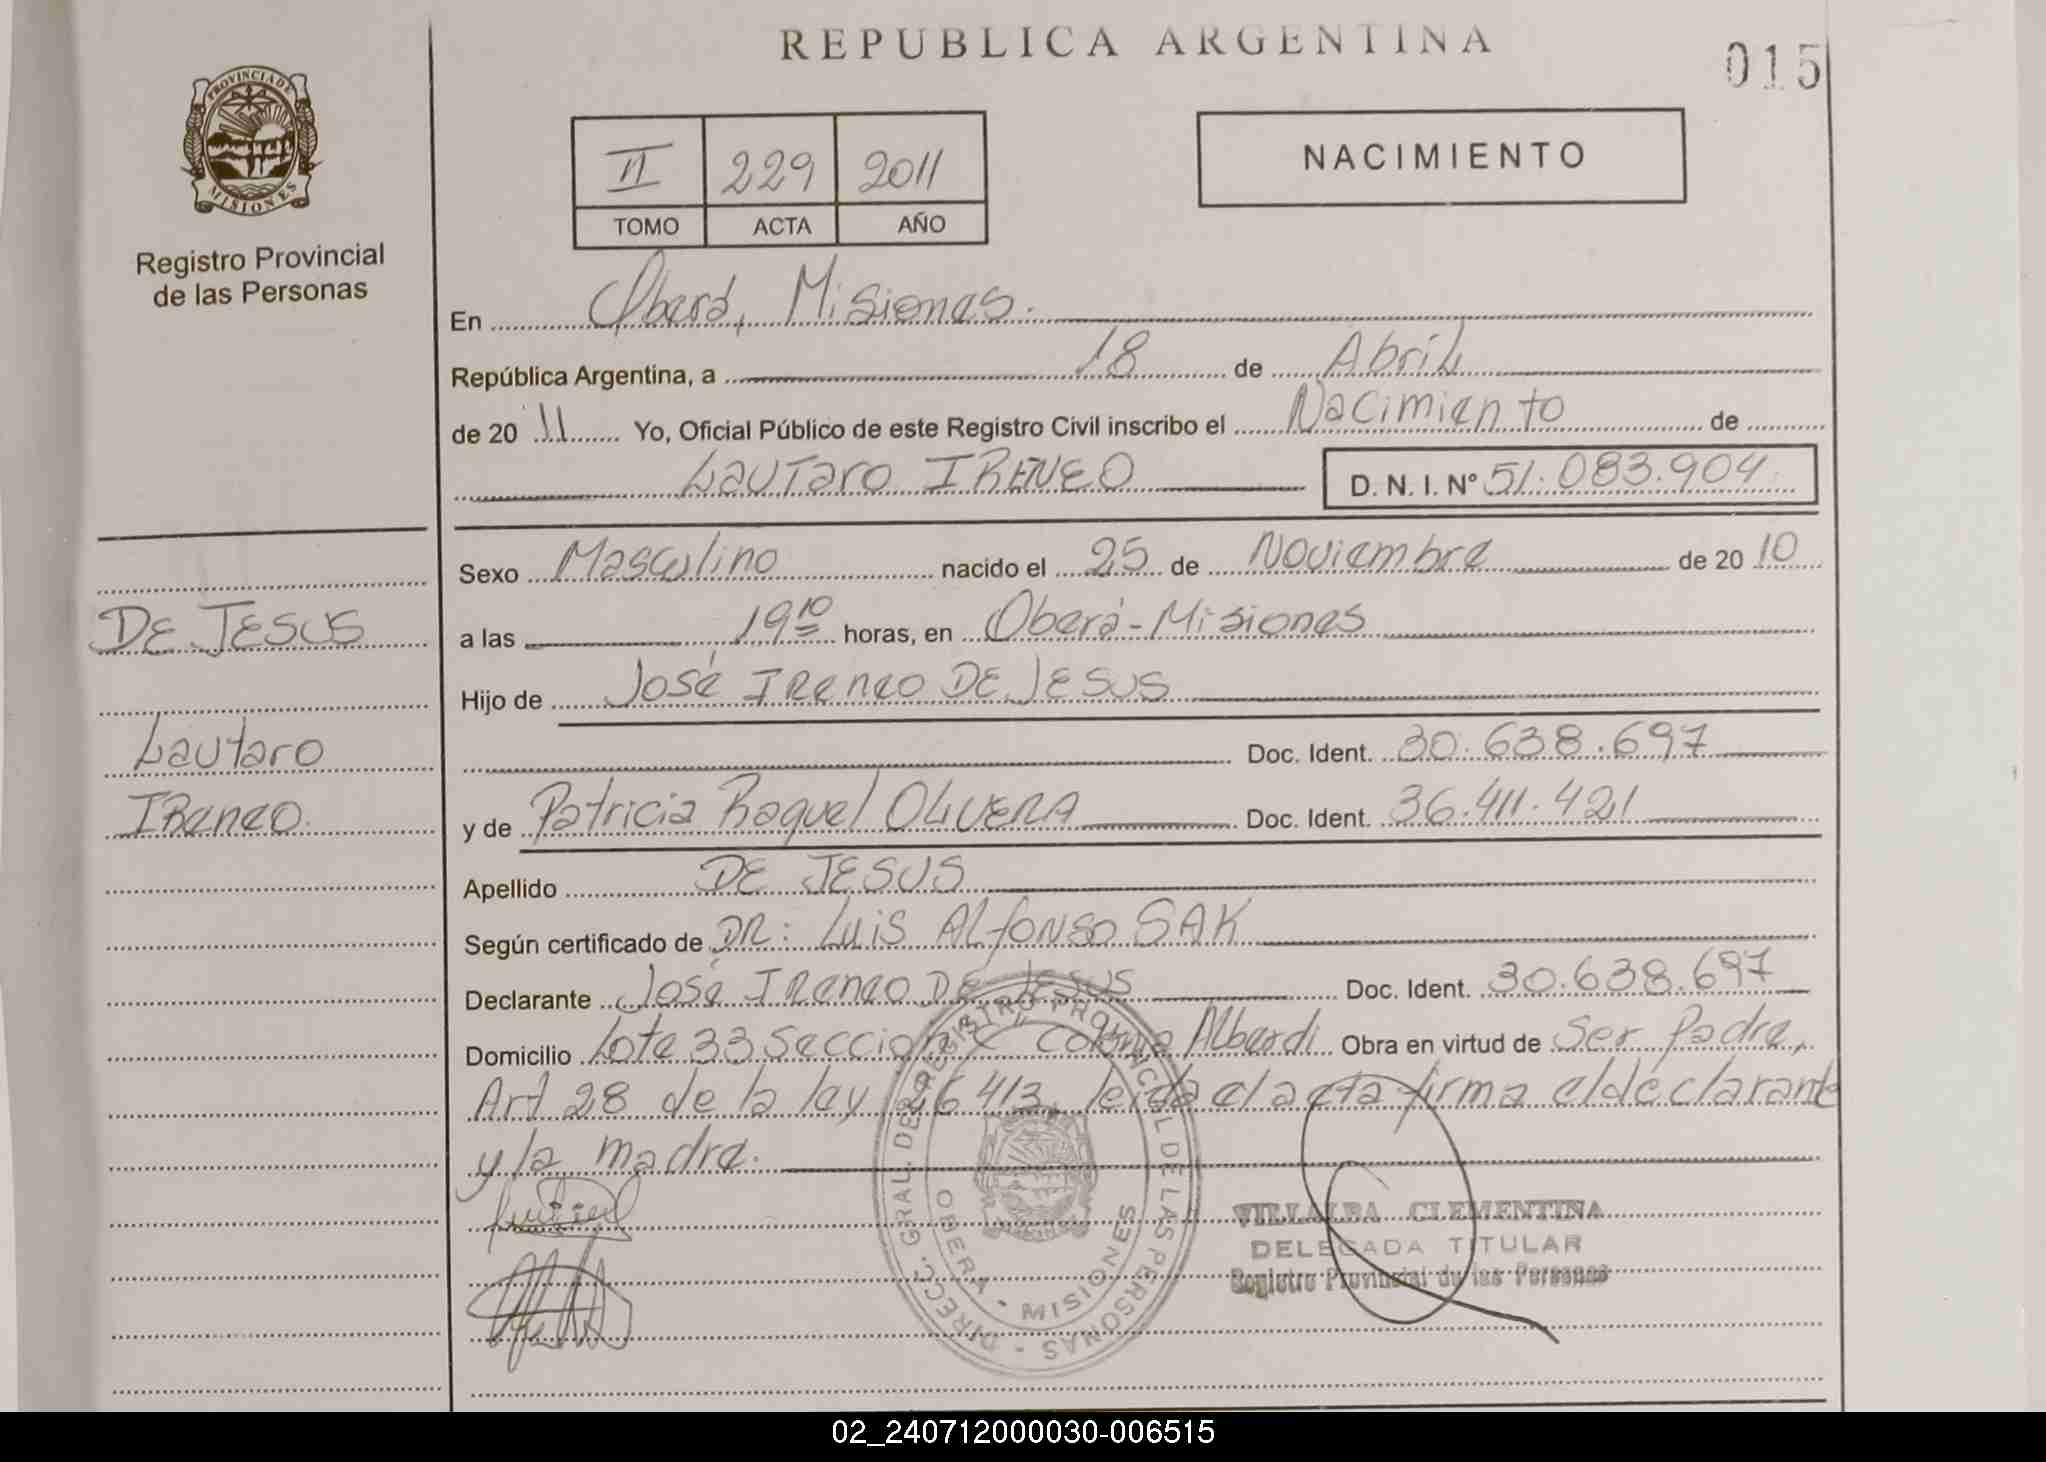 REPUBLICA ARGENTINA
015
PROVINCIA DE
MISIONES
Registro Provincial
de las Personas
II 229 2011
TOMO ACTA AÑO
NACIMIENTO
En Oberá, Misiones.
República Argentina, a 18 de Abril
de 20 11 Yo, Oficial Público de este Registro Civil inscribo el Nacimiento de
Lautaro IRENEO D. N. I. Nº 51.083.904
Sexo Masculino nacido el 25 de Noviembre de 20 10
a las 19 10 horas, en Oberá - Misiones
Hijo de José Ireneo DE JESUS
Doc. Ident. 30.638.697
y de Patricia Raquel OLIVERA Doc. Ident. 36.411.421
Apellido DE JESUS
Según certificado de DR: Luis Alfonso SAK
Declarante José Ireneo DE JESUS Doc. Ident. 30.638.697
Domicilio Lote 33 Seccion Colonia Alberdi Obra en virtud de Ser Padre,
Art 28 de la ley 26413, leida el acta firma el declarante
y la madre.
DE JESUS
Lautaro
Ireneo.
DIRECC. GRAL. DE REGISTRO PROVINCIAL DE LAS PERSONAS
OBERA - MISIONES
VILLALBA CLEMENTINA
DELEGADA TITULAR
Registro Provincial de las Personas
02_240712000030-006515